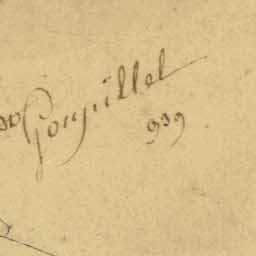 Goupillet
939